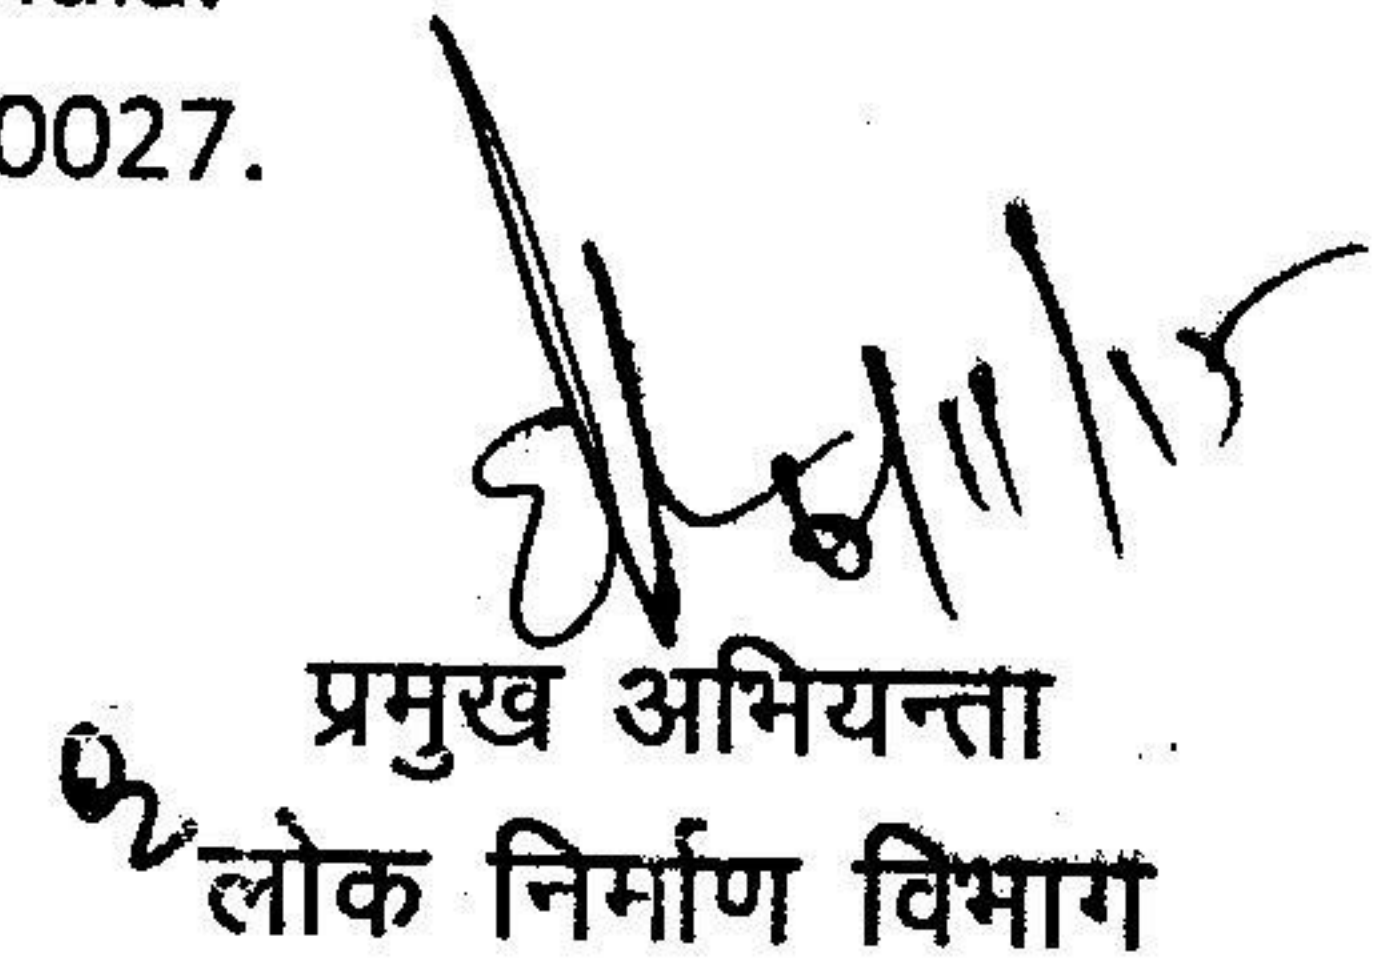 0027.
प्रमुख अभियन्ता
लोक निर्माण विभाग